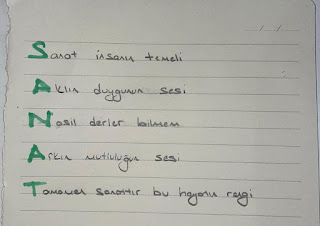 Sanat insanın temeli
Aklın duygunun sesi
Nasıl derler bilmem
Aşkın mutluluğun sesi
Tamamen sanattır bu hayatın rengi